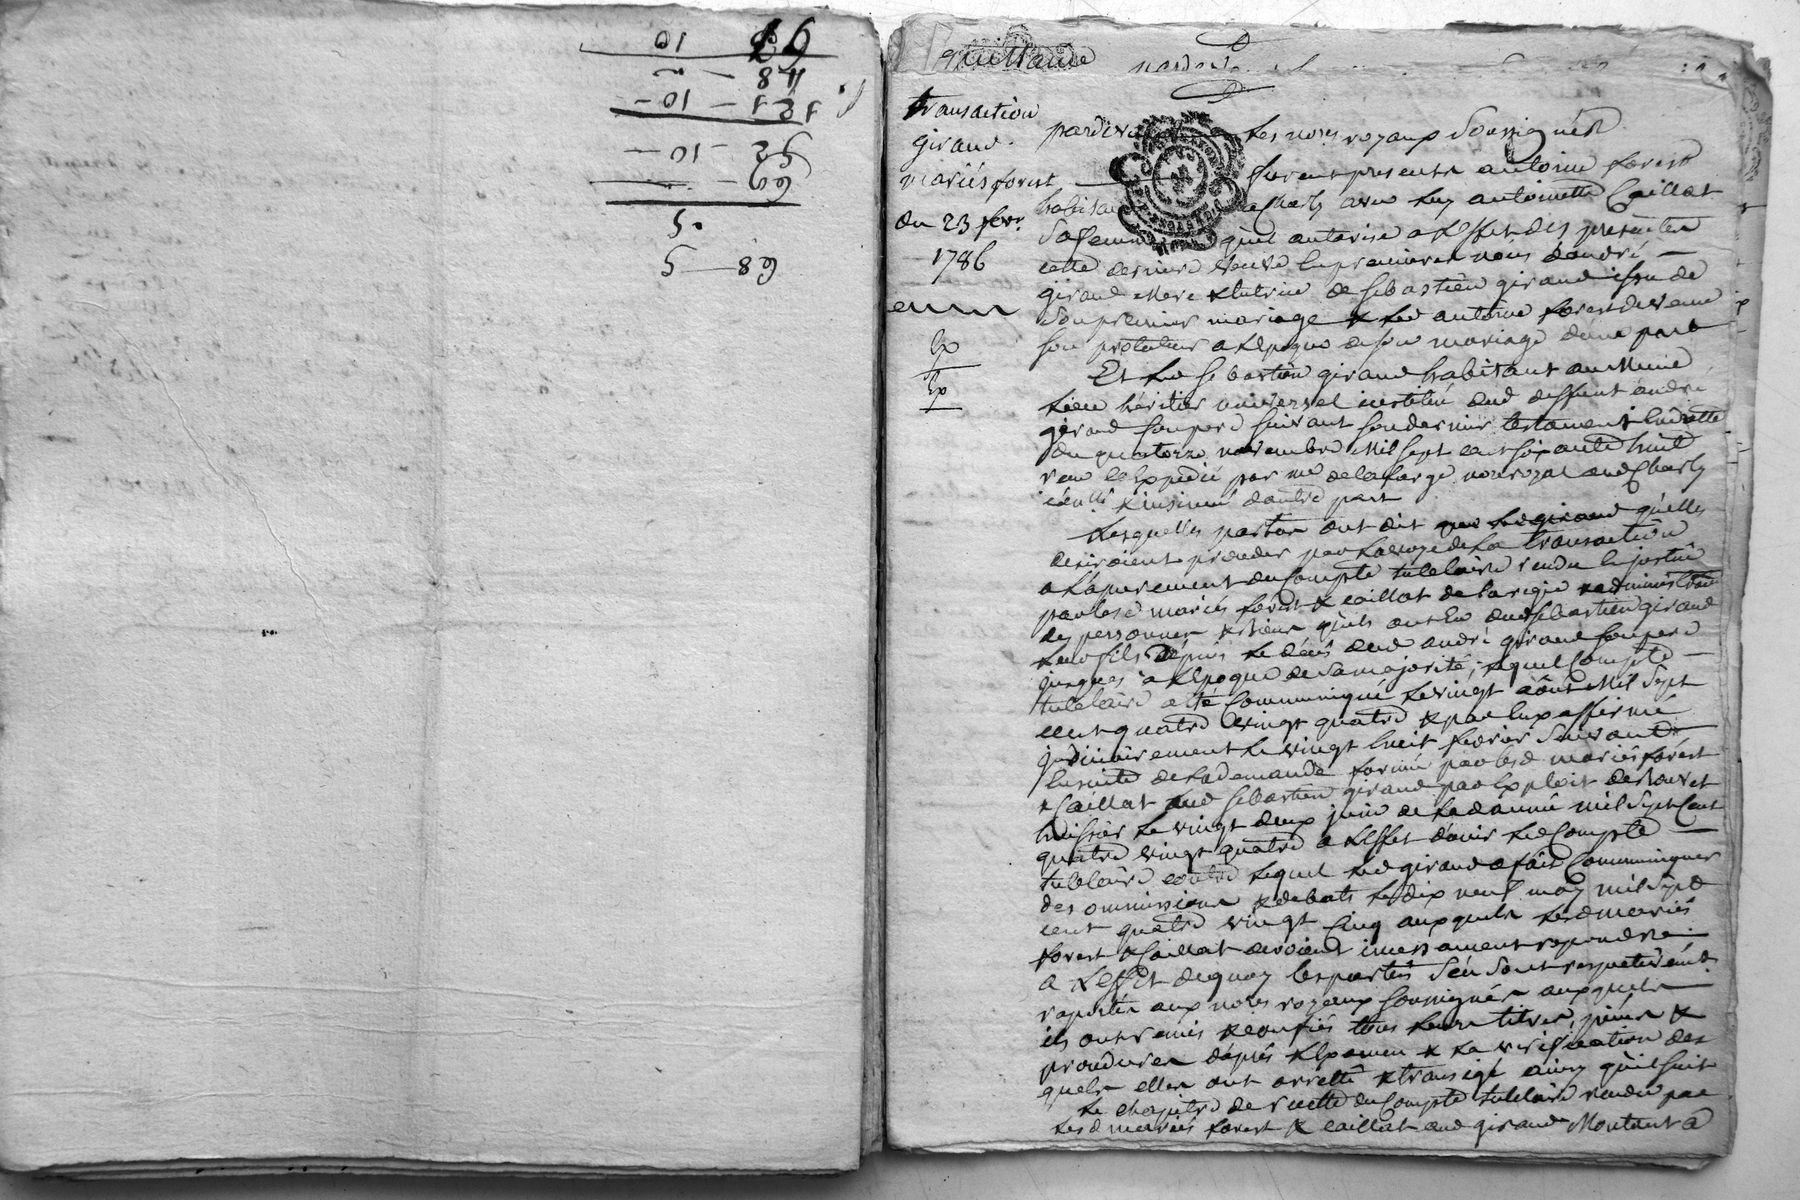 10
48
121 - 10 -
52 - 10 -
69
5
68 - 5
quittance
transaction
giraud
mariés forest
du 23 fevr
1786
Exp
Exp
pardevant Les nores royaux soussignés
furent presents antoine forest
habitant a Charly avec luy antoinette Caillat
sa femme qu'il autorise a L'effet des presentes
cette derniere veuve en premieres noces d'andré
giraud Mere & tutrice de sebastien giraud issu de
son premier mariage & Led antoine forest devenu
son protuteur a L'epoque de son mariage d'une part
Et Led sebastien giraud habitant au Meme
Lieu héritier universel institué dud deffunt andré
giraud son pere suivant son dernier testament
du quatorze novembre Mil sept cent soixante huit
recu & Expedié par me delafarge nore royal aud Charly
& insinué d'autre part
Lesquelles parties ont dit qu'elles
desiroient proceder par La voye de La transaction
a L'apurement du Compte tutelaire rendu en justice
par lesd mariés forest & caillat de la regie & administration
des personnes & biens qu'ils ont eu dud sebastien giraud
Leur fils depuis Le décés dud andré giraud son pere
jusques a L'epoque de sa majorité, Lequel Compte
tutelaire a été Communiqué Le vingt aôut Mil sept
cent quatre vingt quatre & par eux affermé
judiciairement Le vingt huit fevrier suivant
ensuite de La demande formée par lesd mariés forest
& Caillat aud sebastien giraud par Exploit de
huissier Le vingt deux juin de Lad année mil sept Cent
quatre vingt quatre a L'effet d'ouir Led Compte
tutelaire contre Lequel Led giraud a fait Communiquer
des ommissions & debats Le dix neuf may mil sept
cent quatre vingt Cinq auxquels Lesd mariés
forest & Caillat devoient incessament repondre
a L'effet de quoy les parties s'en sont respectivemt
raportés aux nores royaux soussignés auxquels
ils ont remis & confiés tous Leurs titres, pieces &
procedures d'aprés L'Examen & La verification des
quels elles ont arretté & transigé ainsy qu'il suit
Le chapitre de recette du Compte tutelaire rendu par
Lesd mariés forest & caillat aud giraud Montant a